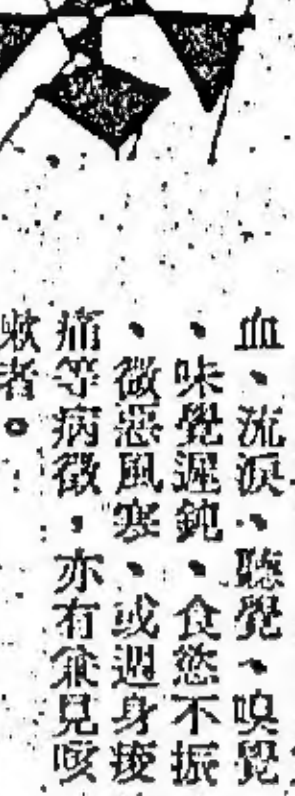 血、流淚、聽覺、嗅覺
、味覺遲鈍、食慾不振
、微惡風寒、或週身痠
痛等病徵，亦有兼見咳
嗽者。